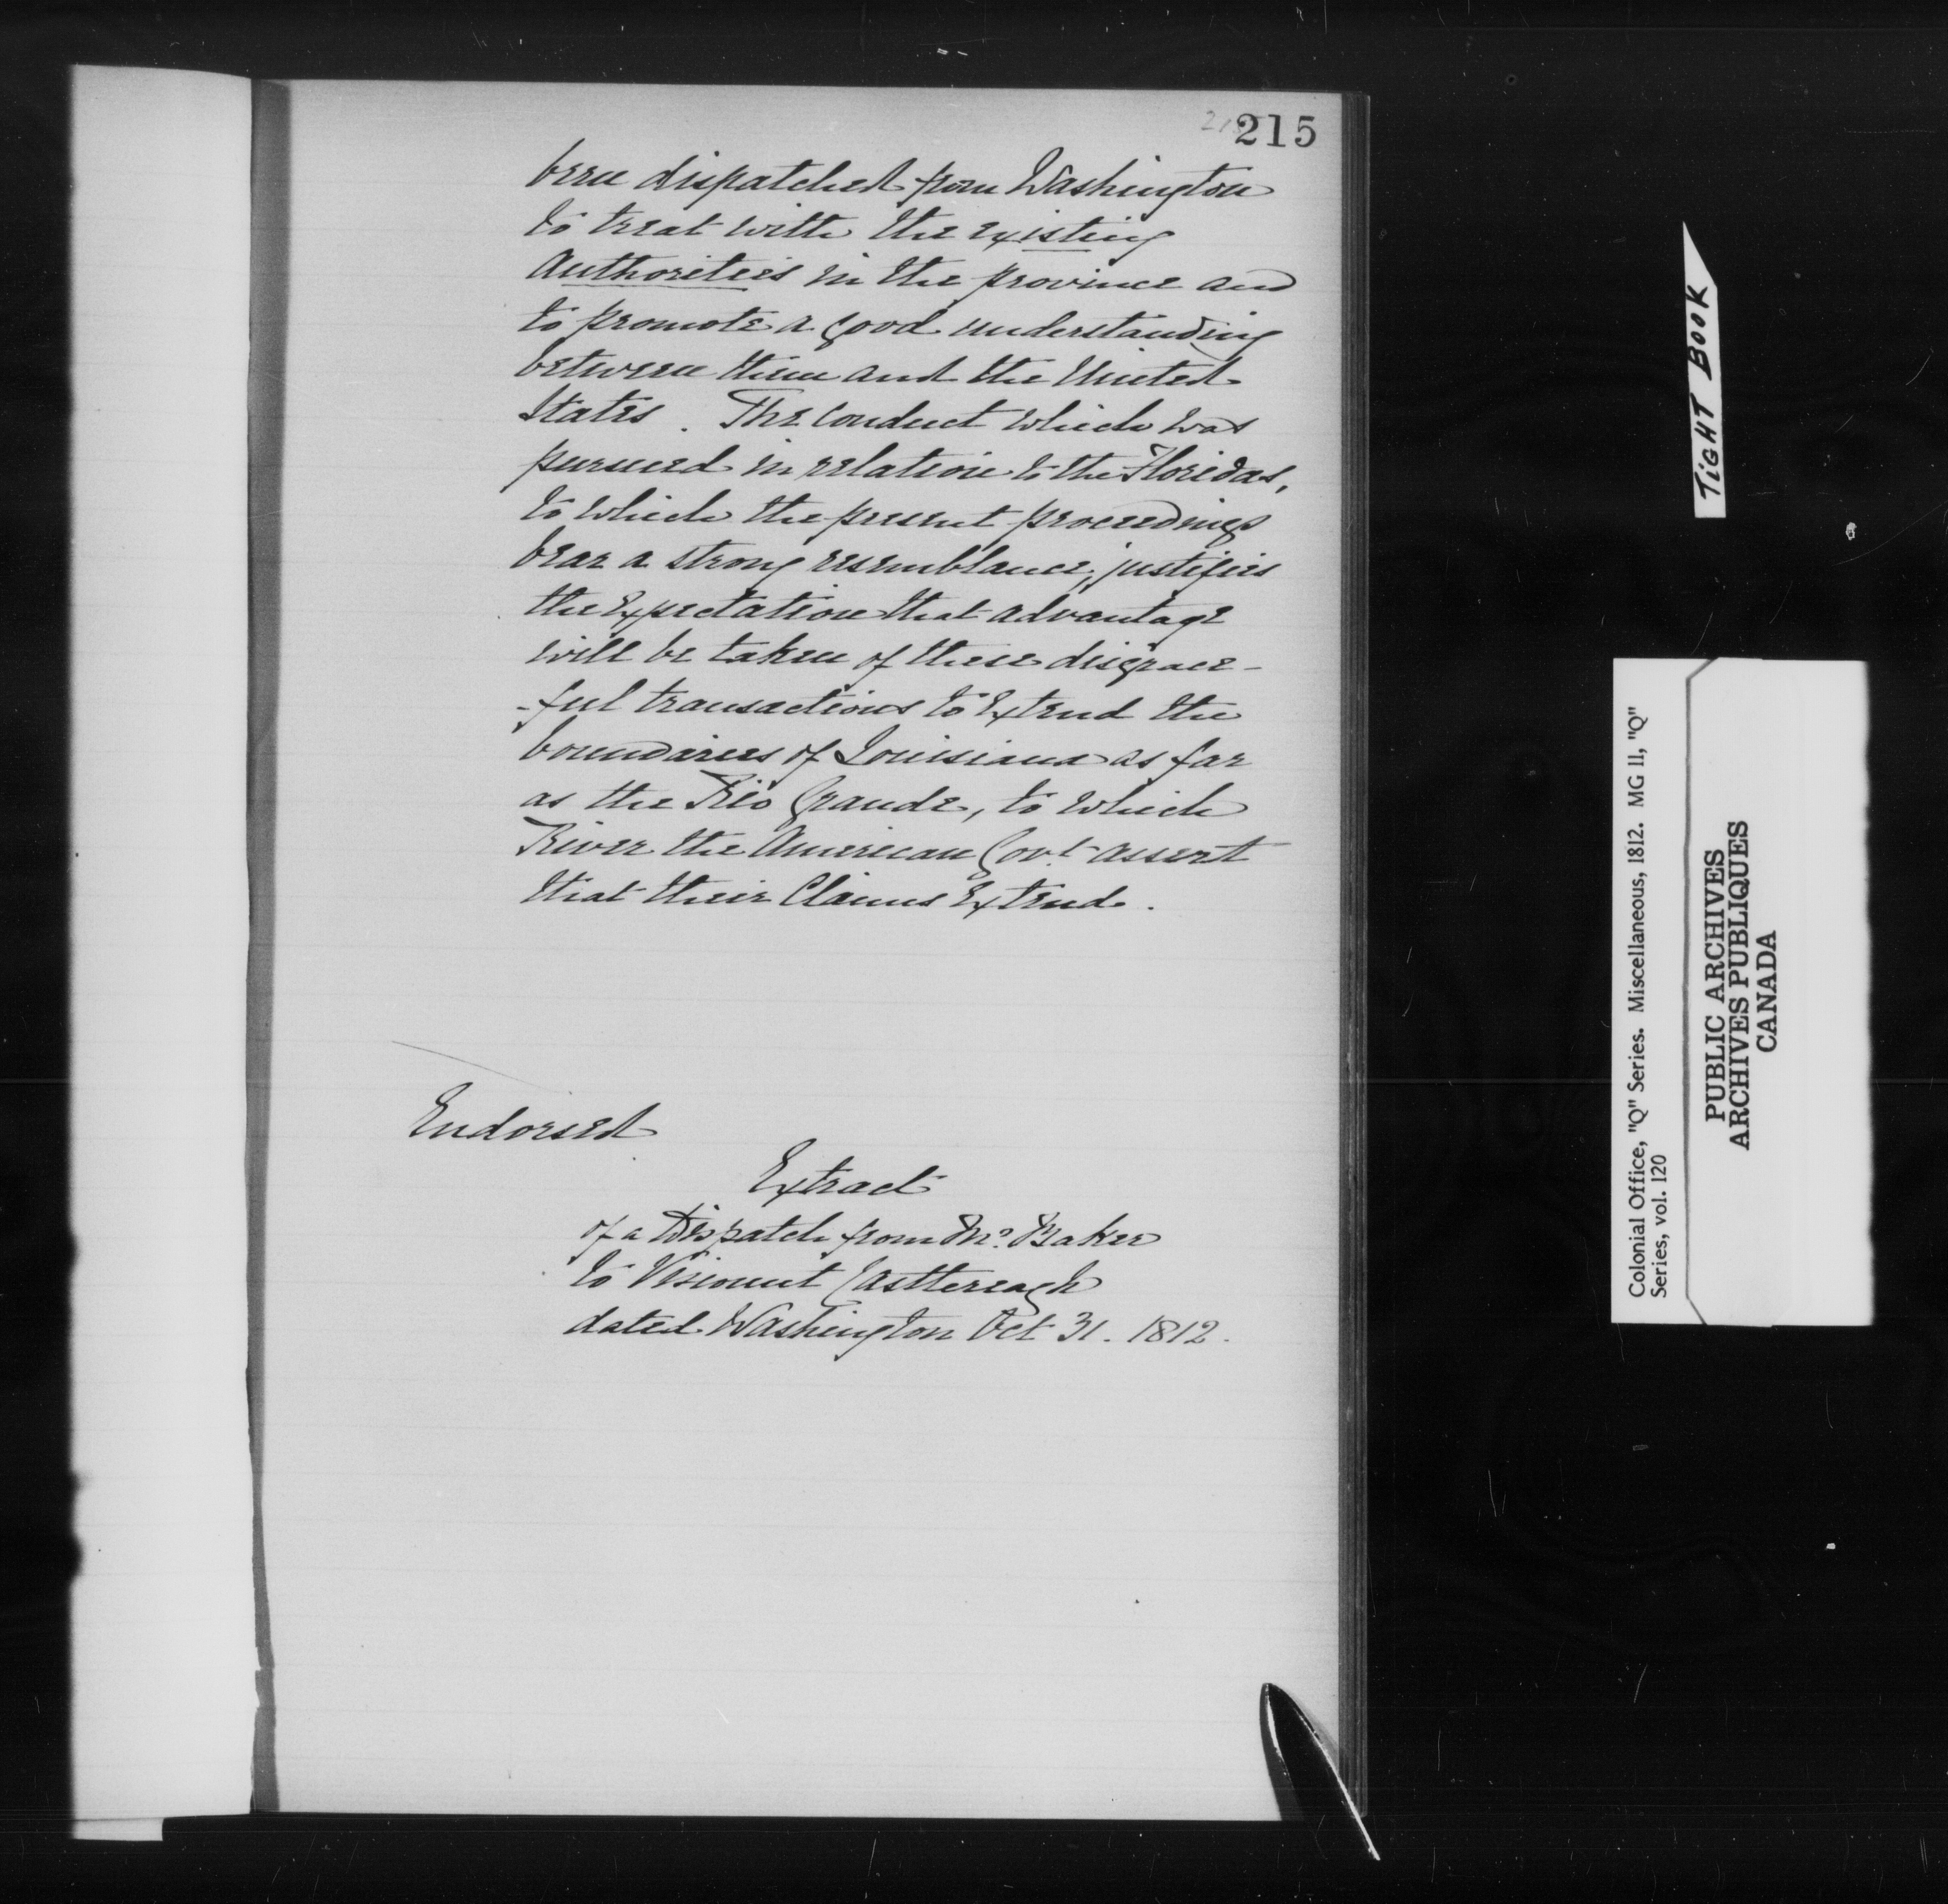 215
been dispatched from Washington
to treat with the existing
Authorities in the province and
to promote a good understanding
between them and the United
States. The conduct which was
pursued in relation to the Floridas,
to which the present proceedings
bear a strong resemblance, justifies
the Expectation that advantage
will be taken of these disgrace-
-ful transactions to Extend the
boundaries of Louisiana as far
as the Rio Grande, to which
River the American Govt assert
that their Claims Extend.
Endorsed
Extract
of a Dispatch from Mr. Baker
to Viscount Castlereagh
dated Washington Oct 31. 1812.
TIGHT BOOK
Colonial Office, "Q" Series. Miscellaneous, 1812. MG 11, "Q"
Series, vol. 120
PUBLIC ARCHIVES
ARCHIVES PUBLIQUES
CANADA